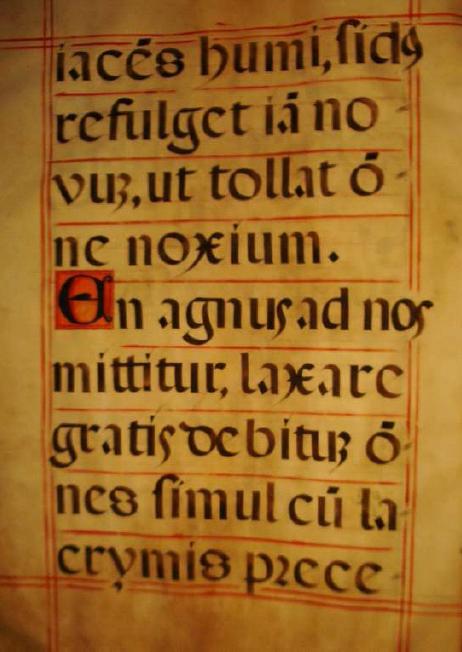 iacēs humi, ſidꝰ
refulget iā no-
vuꝫ, ut tollat ō-
ne noxium.
En agnus ad nos
mittitur, laxare
gratis debituꝫ ō-
nes ſimul cū la-
crymis prece-